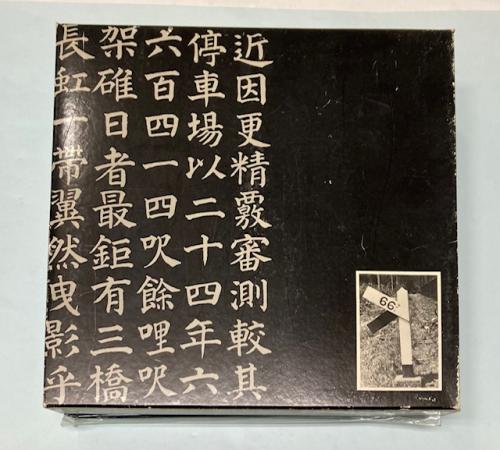 近因更精覈審測較其
停車場以二十四年六
六百四一四呎餘哩呎
架碓日者最鉅有三橋
長虹一帶翼然曳影乎
66